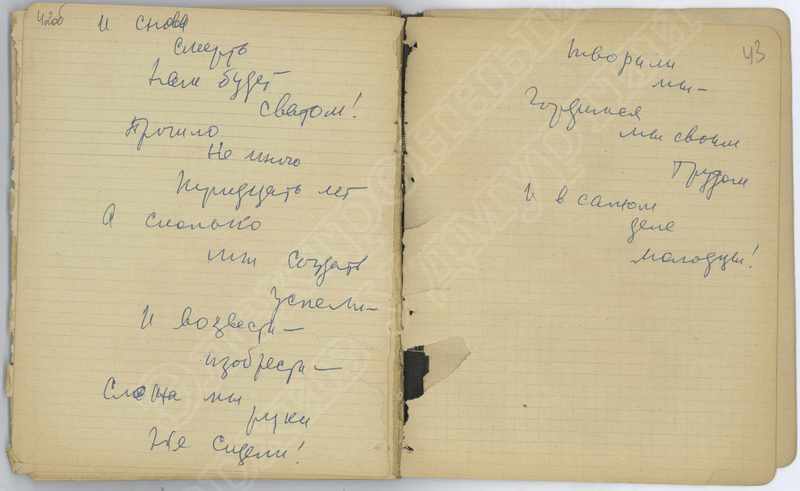 42об
И снова
смерть
Нам будет
сватом!
Прошло
Не много
тридцать лет
А сколько
мы создать
успели—
И возвести—
изобрести—
Сложа мы
руки
Не сидели!
43
творили
мы—
Гордимся
мы своим
трудом
И в самом
деле
молодцы!